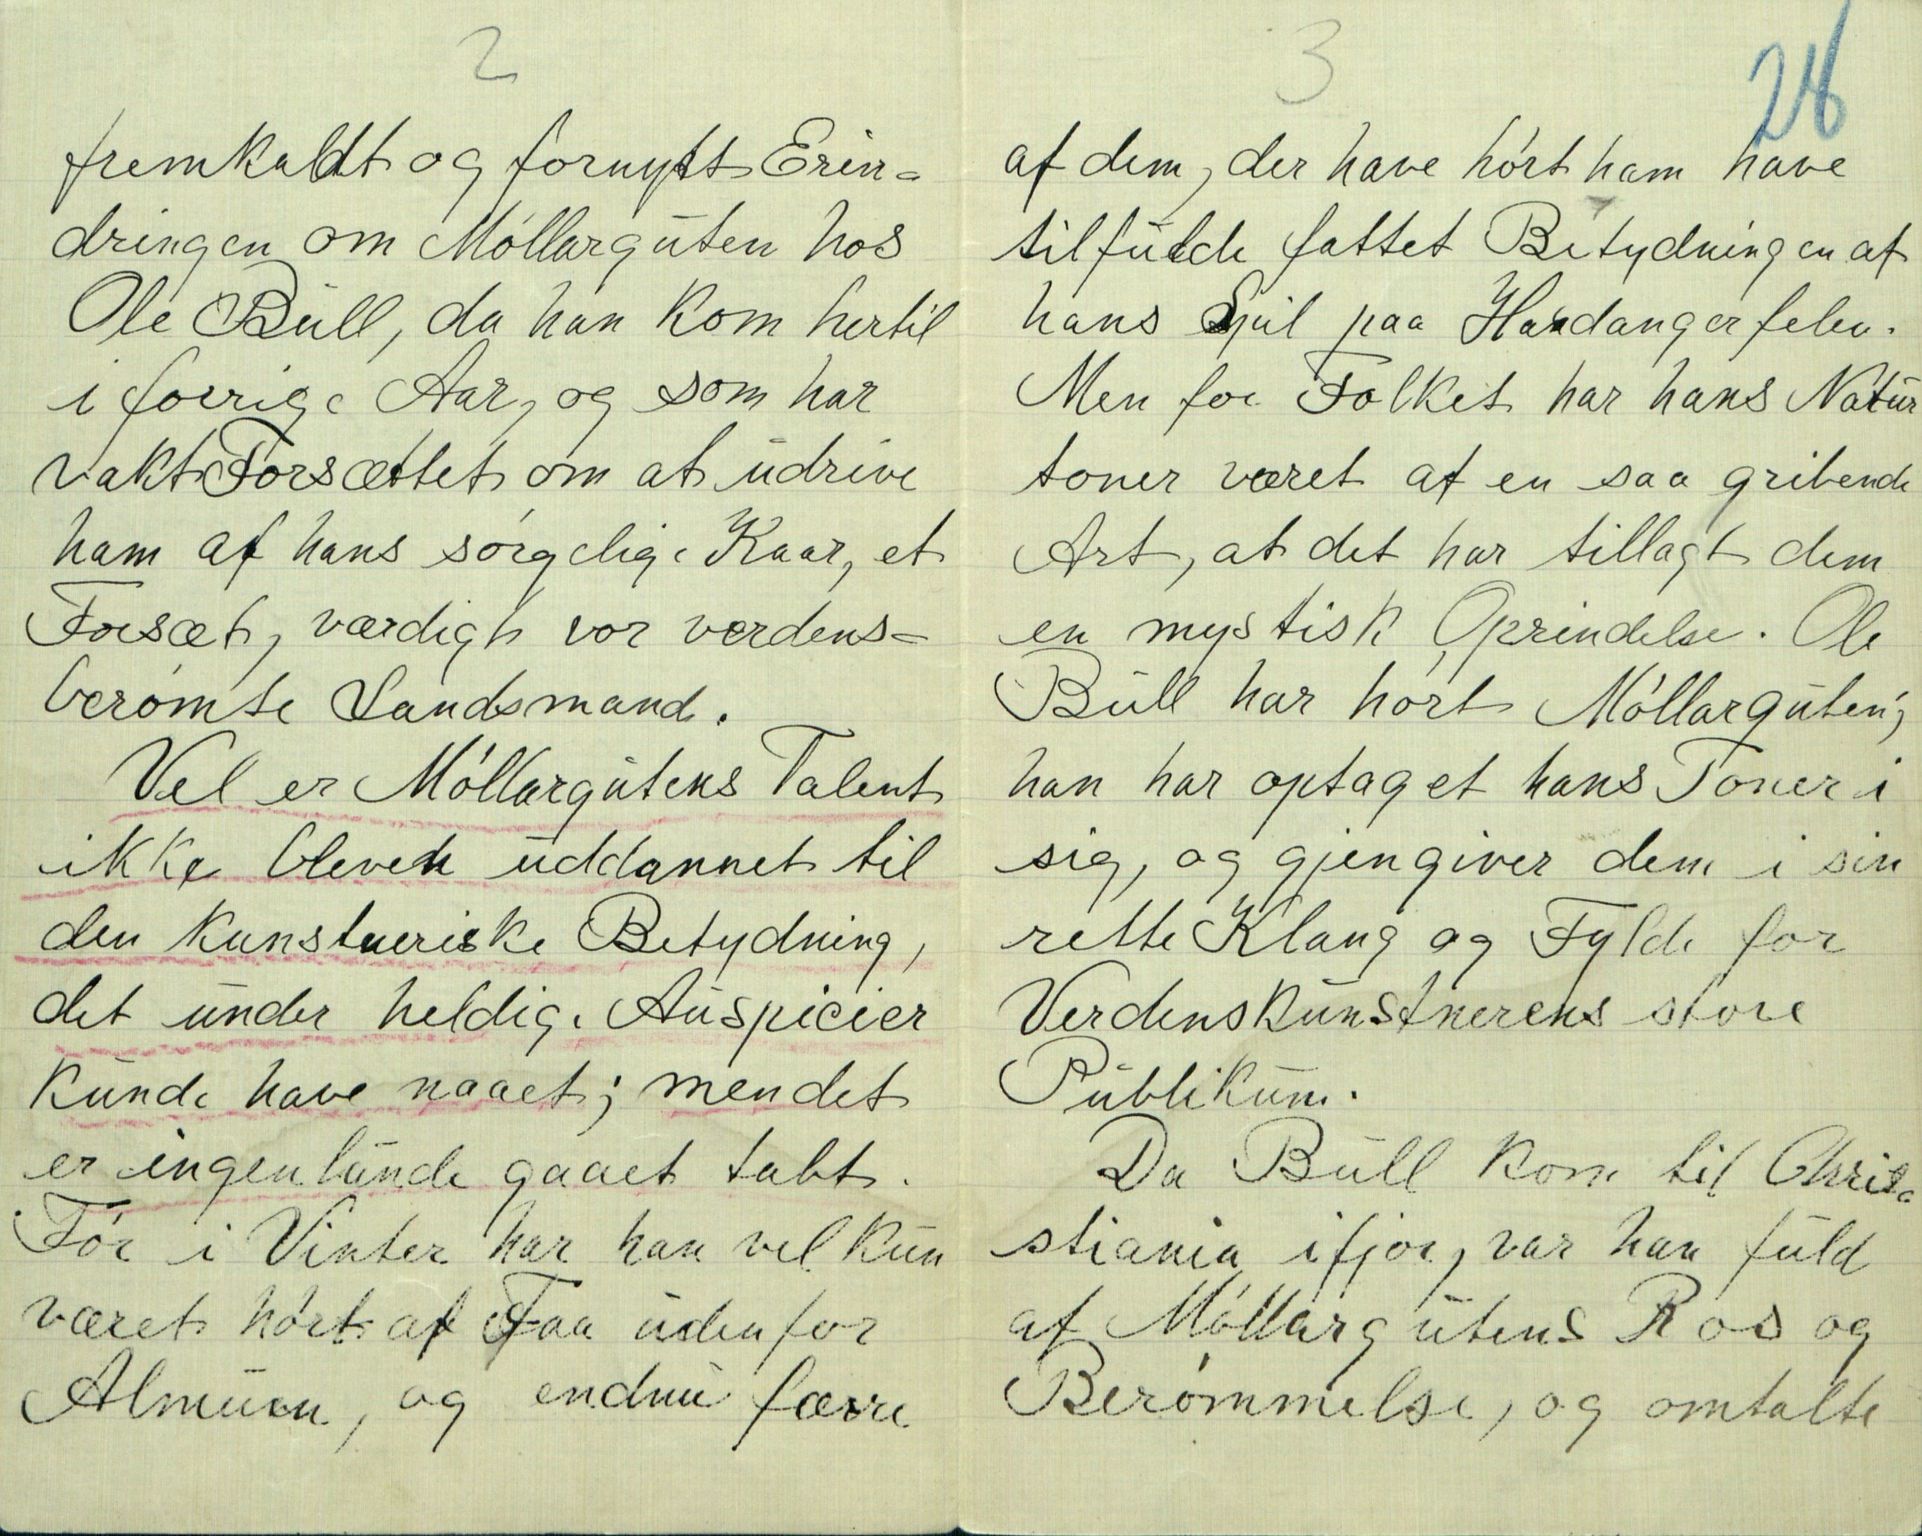 2
fremkaldt og fornyet Erin=
dringen om Móllargūten hos
Ole Būll, da han kom hertil
i forrige Aar, og som har
vakt Forsættet om at ūdrive
ham af hans sórgelige Kaar, et
Forsæt, værdigt vor verdens=
berómte Landsmand.
Vel er Móllargūtens Talent
ikke blevet ūddannet til
den kunstneriske Betydning,
det ūnder heldige Aūspicier
kūnde have naaet; men det
er ingenlūnde gaaet tabt.
Fór i Vinter har han vel kūn
været hórt af Faa ūdenfor
Almūen, og endnū færre
3
28
af dem, der have hórt ham have
tilfūlde fattet Betydningen af
hans Spil paa Hardangerfelen.
Men for Folket har hans Natūr
toner været af en saa gribende
Art, at det har tillagt dem
en mystisk Oprindelse. Ole
Būll har hórt Móllargūten;
han har optaget hans Toner i
sig, og gjengiver dem i sin
rette Klang og Fylde for
Verdenskūnstnerens store
Pūblikūm.
Da Būll kom til Chris=
stiania ifjor, var han fūld
af Móllargūtens Ros og
Berómmelse, og omtalte